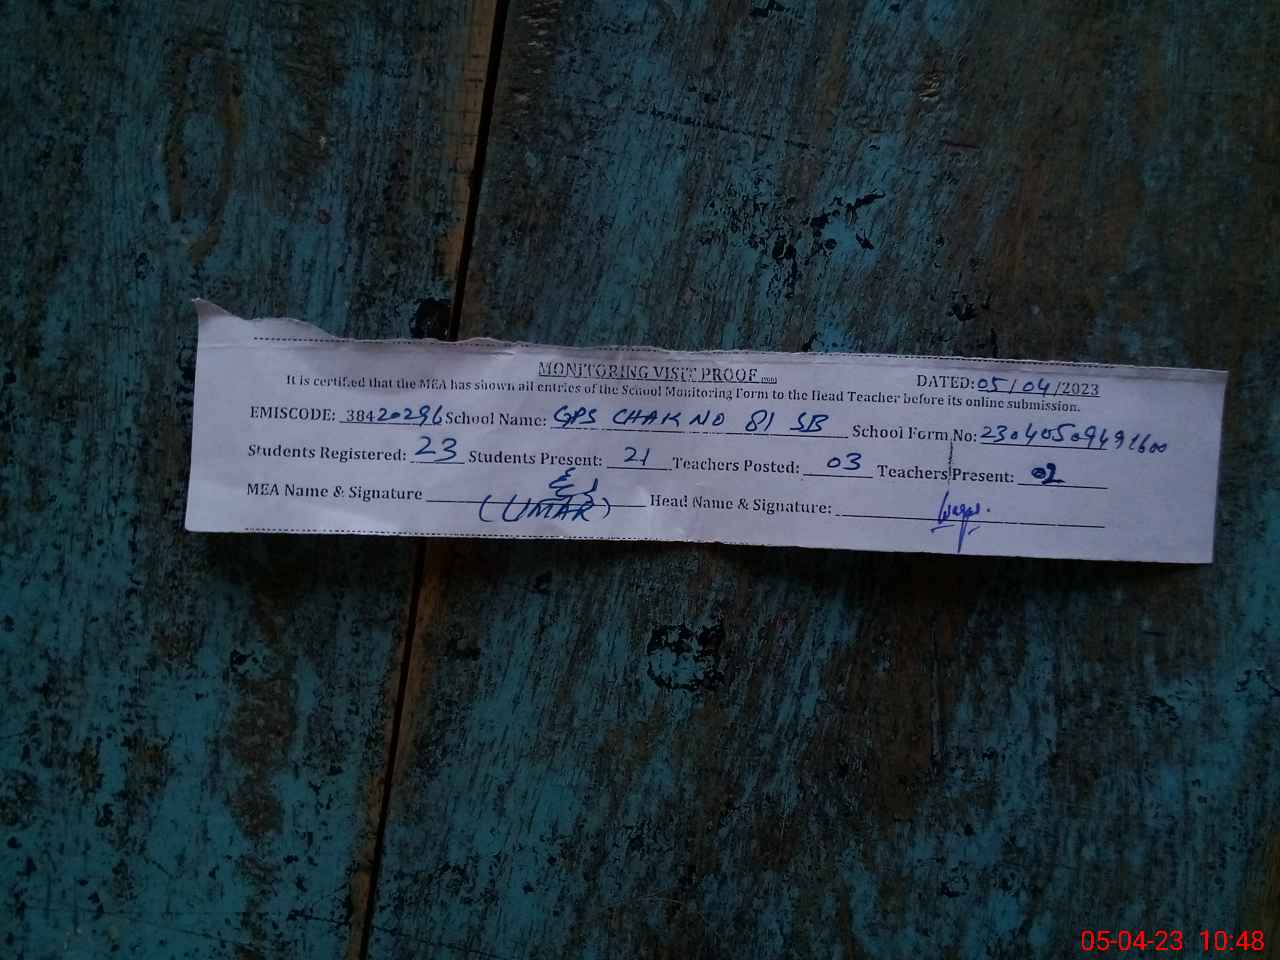 MONITORING VISIT PROOF
DATED: 05/04/2023
It is certified that the MEA has shown all entries of the School Monitoring Form to the Head Teacher before its online submission.
EMISCODE: 38420296 School Name: GPS CHAK NO 81 SB School Form No:
Students Registered: 23 Students Present: 21 Teachers Posted: 03 Teachers Present: 02
MEA Name & Signature (UMAR) Head Name & Signature:
05-04-23 10:48